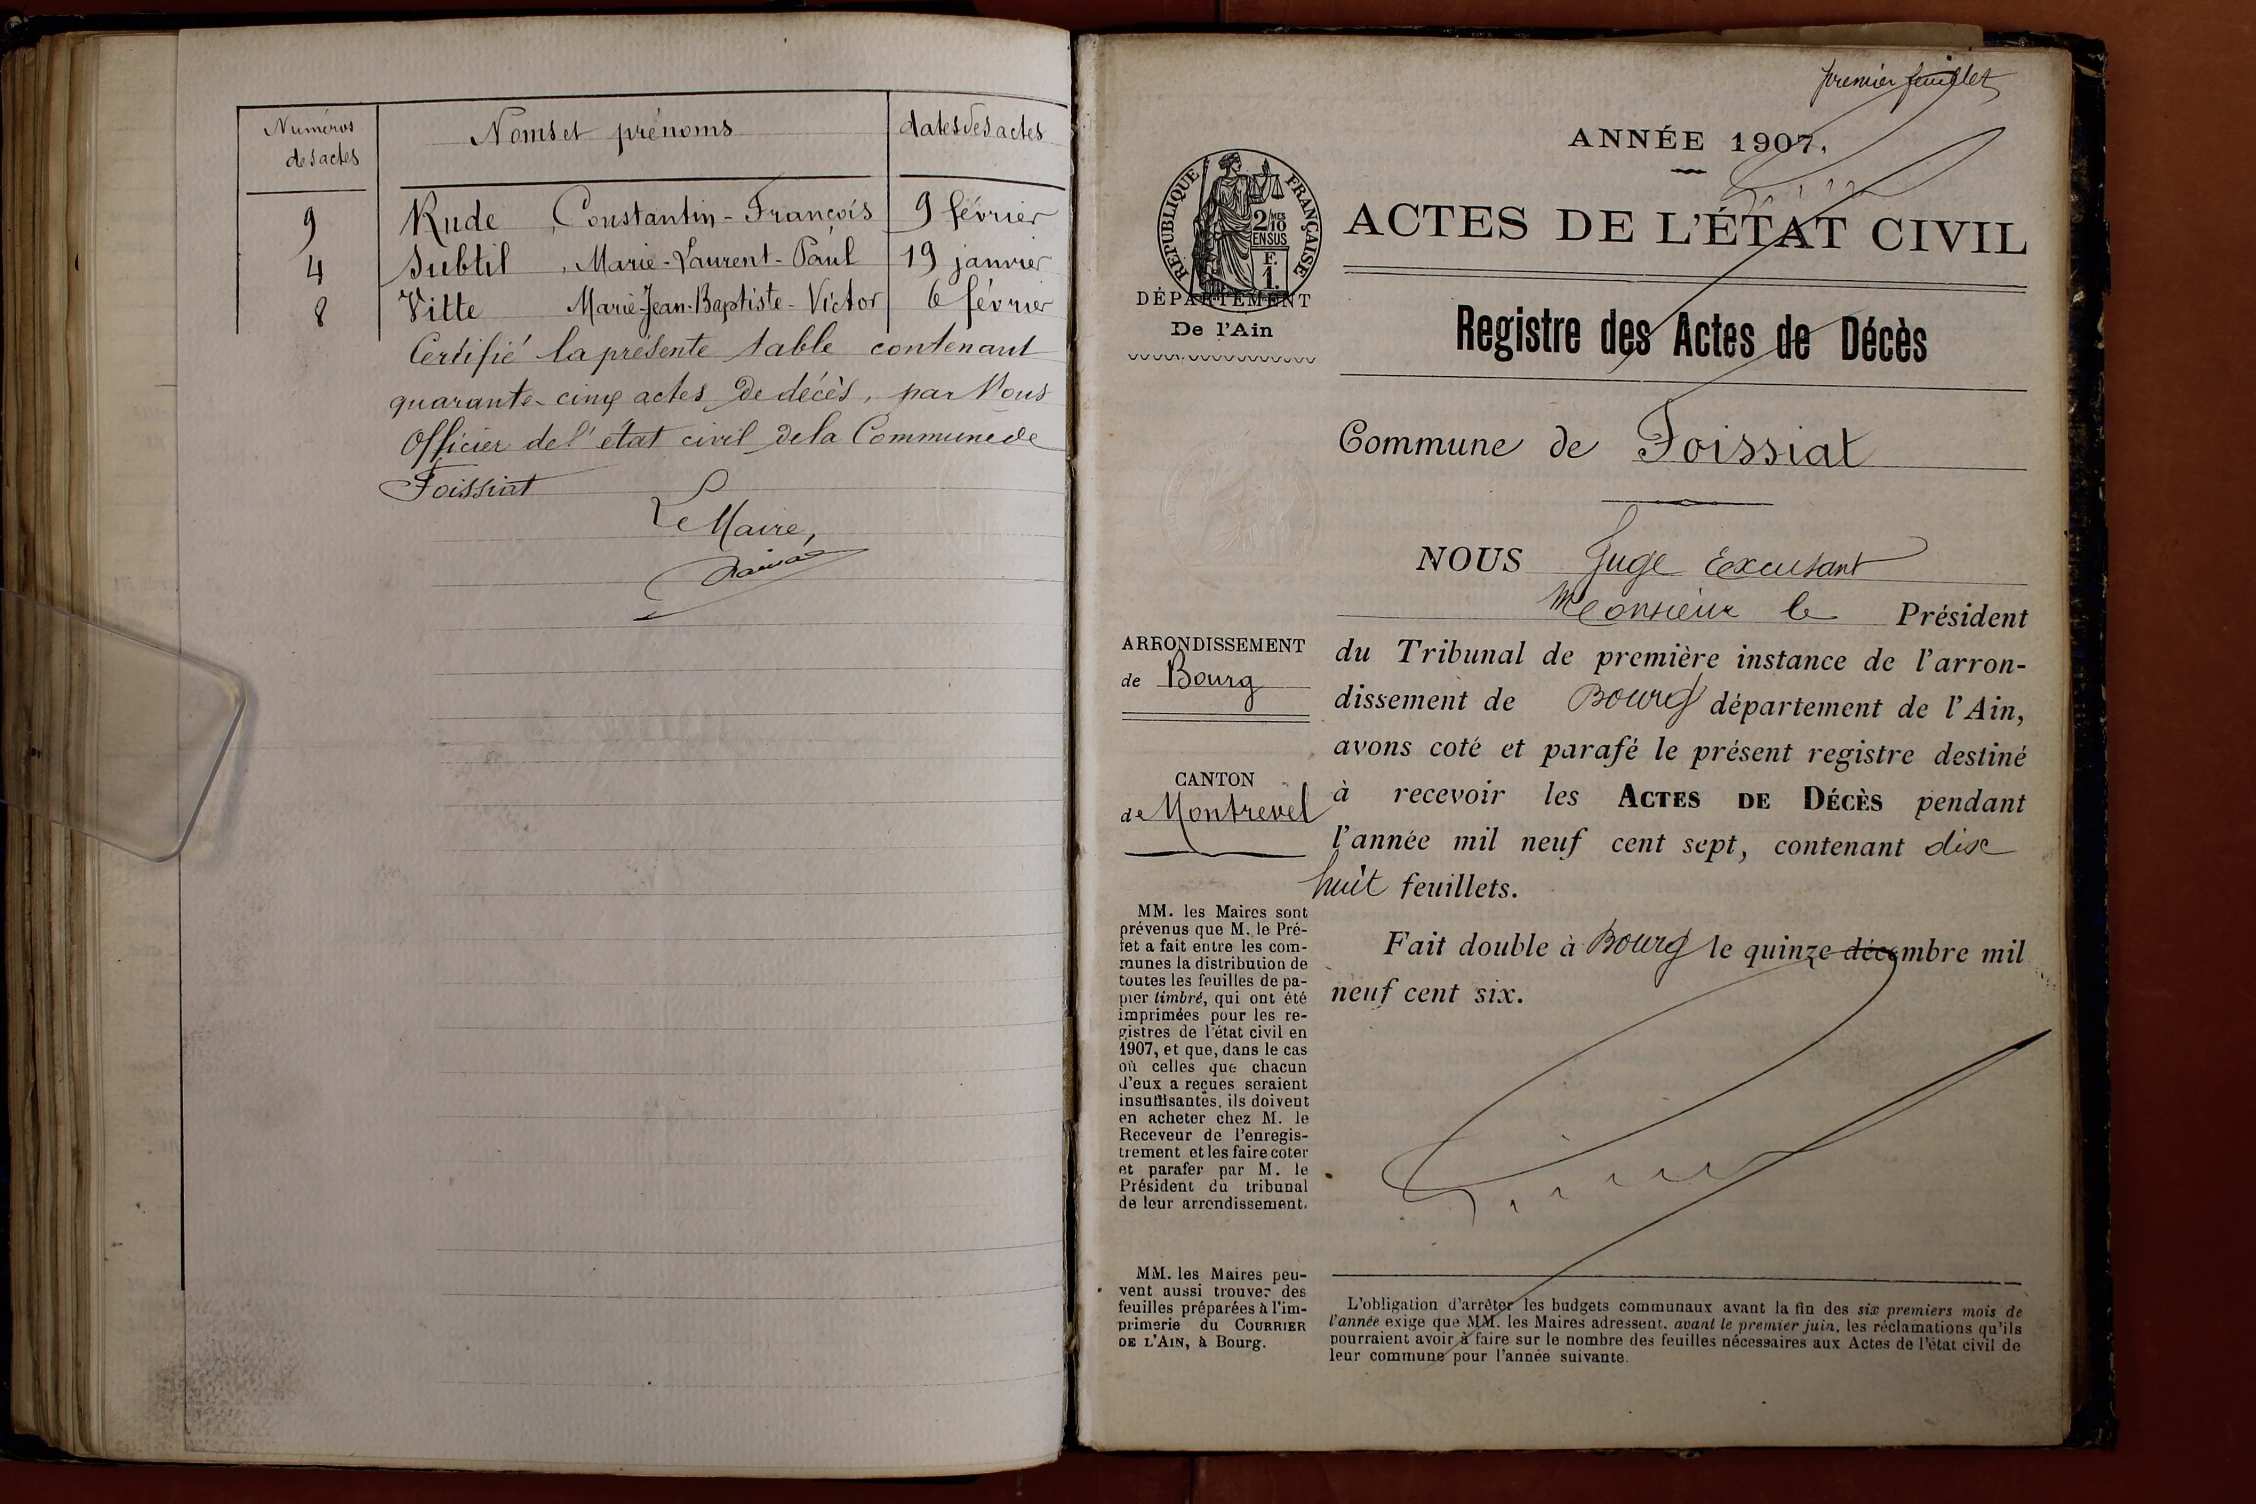 Numéros des actes | Noms et prénoms | dates des actes
9 | Rude, Constantin-François | 9 février
4 | Subtil, Marie-Laurent-Paul | 19 janvier
8 | Vitte Marie-Jean-Baptiste-Victor | 6 février
Certifié la présente table contenant
quarante-cinq actes de décès, par Nous
Officier de l'état civil de la Commune de
Foissiat
Le Maire,
premier feuillet
ANNÉE 1907.
RÉPUBLIQUE FRANÇAISE
2/10 MES
EN SUS
F.
1.
DÉPARTEMENT
De l'Ain
ACTES DE L'ÉTAT CIVIL
Registre des Actes de Décès
Commune de Foissiat
NOUS Juge Excusant
Monsieur le Président
du Tribunal de première instance de l'arron-
dissement de Bourg département de l'Ain,
avons coté et parafé le présent registre destiné
à recevoir les ACTES DE DÉCÈS pendant
l'année mil neuf cent sept, contenant dix
huit feuillets.
Fait double à Bourg le quinze décembre mil
neuf cent six.
ARRONDISSEMENT
de Bourg
CANTON
de Montrevel
MM. les Maires sont
prévenus que M. le Pré-
fet a fait entre les com-
munes la distribution de
toutes les feuilles de pa-
pier timbré, qui ont été
imprimées pour les re-
gistres de l'état civil en
1907, et que, dans le cas
où celles que chacun
d'eux a reçues seraient
insuffisantes, ils doivent
en acheter chez M. le
Receveur de l'enregis-
trement et les faire coter
et parafer par M. le
Président du tribunal
de leur arrondissement.
MM. les Maires peu-
vent aussi trouver des
feuilles préparées à l'im-
primerie du COURRIER
DE L'AIN, à Bourg.
L'obligation d'arrêter les budgets communaux avant la fin des six premiers mois de
l'année exige que MM. les Maires adressent, avant le premier juin, les réclamations qu'ils
pourraient avoir à faire sur le nombre des feuilles nécessaires aux Actes de l'état civil de
leur commune pour l'année suivante.